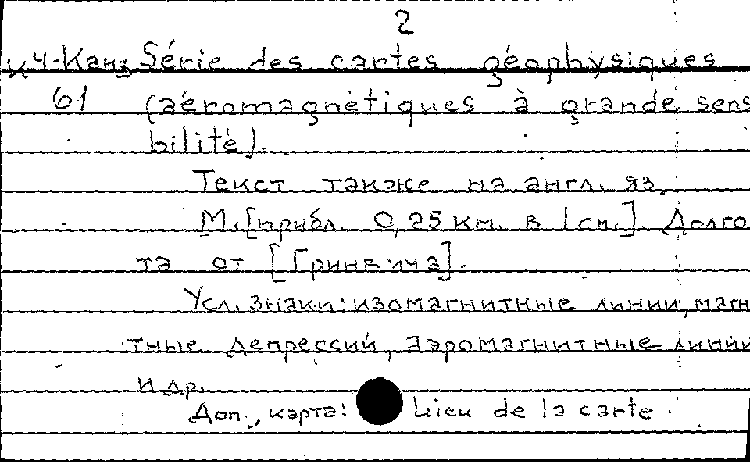 2
Ч-Кан Série des cartes géophysiques
61 (aéromagnétiques à grande sens
bilité).
Текст также на англ. яз.
М. [прибл. 0,25 км. в 1 см.]. Долго
та от [Гринвича].
Усл. знаки: изомагнитные линии, магн
тные депрессий, аэромагнитные линии
и др.
Доп. карта: Lieu de la carte.